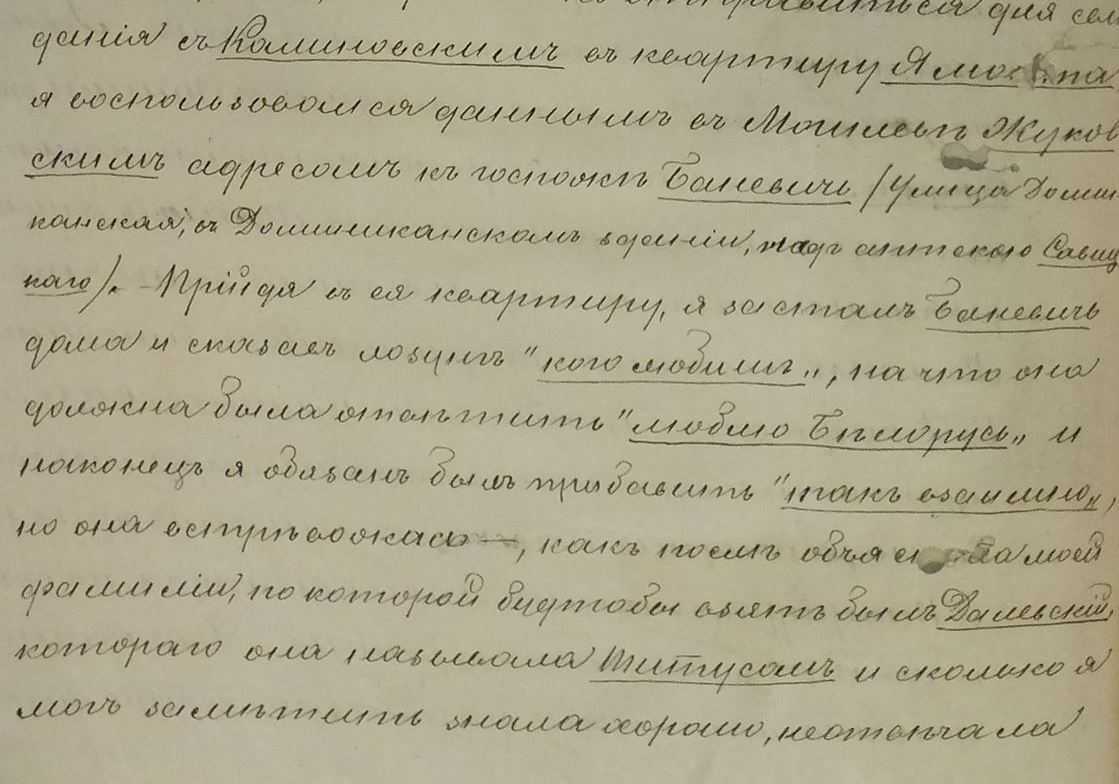 отправиться для сви
данія съ Калиновскимъ въ квартиру Ямонта
я воспользовался даннымъ въ Могилевѣ Жуков
скимъ адресомъ къ госпожѣ Баневичь /Улица Доми
канская, въ Доминиканскомъ зданіи, надъ аптекою Савиц
каго/. Прійдя въ ея квартиру, я засталъ Баневичь
дома и сказавъ лозунгъ "кого любишь„, на что она
должна была отвѣтить "люблю Бѣлорусь„ и
наконецъ я обязанъ былъ прибавить "такъ взаимно„,
но она встревожась —, какъ послѣ объяснила моей
фамиліи, по которой будтобы взятъ былъ Далевскій,
котораго она называла Титусомъ и сколько я
могъ замѣтить знала хорошо, неотвѣчала